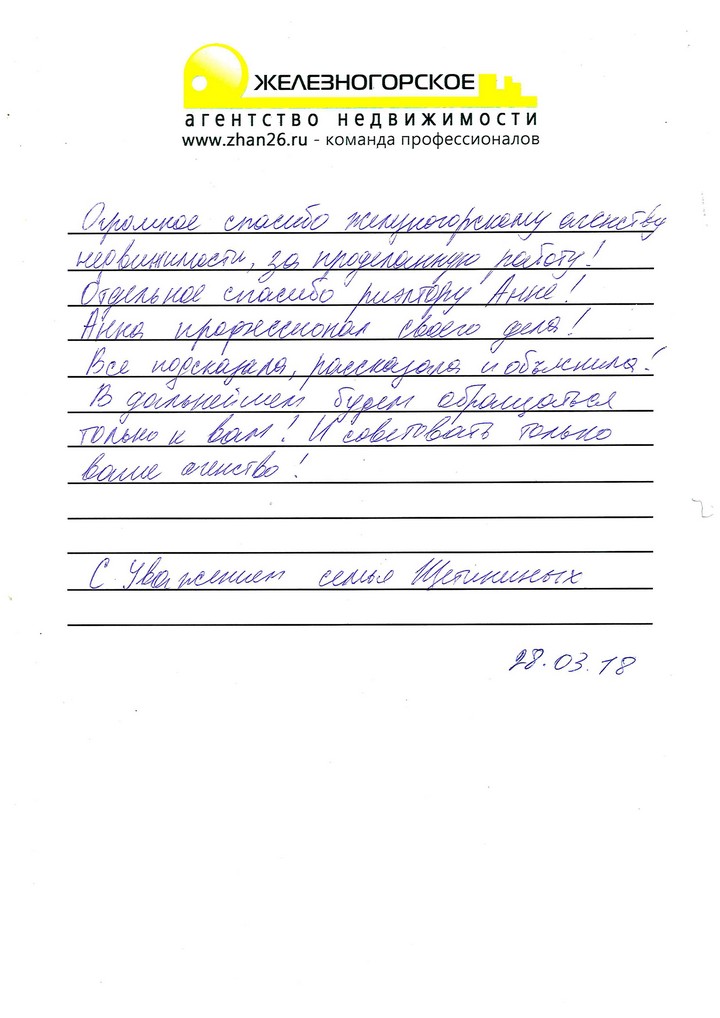 ЖЕЛЕЗНОГОРСКОЕ
агентство недвижимости
www.zhan26.ru - команда профессионалов
Огромное спасибо железногорскому агенству
недвижимости, за проделанную работу!
Отдельное спасибо риэлтору Анне!
Анна професионал своего дела!
Все подсказала, рассказала и объяснила!
В дальнейшем будем обращаться
только к вам! И советовать только
ваше агенство!
С Уважением семья Щетининых
28.03.18